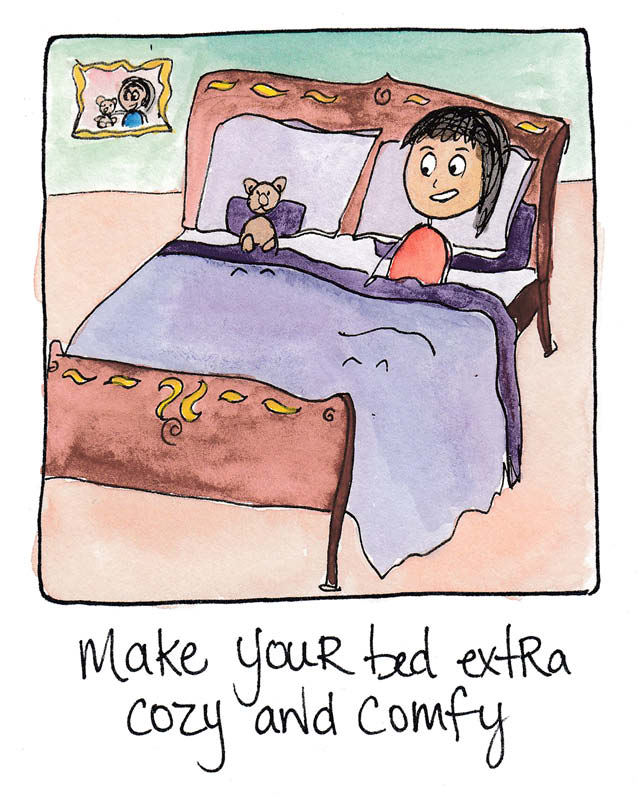 make your bed extra
cozy and comfy